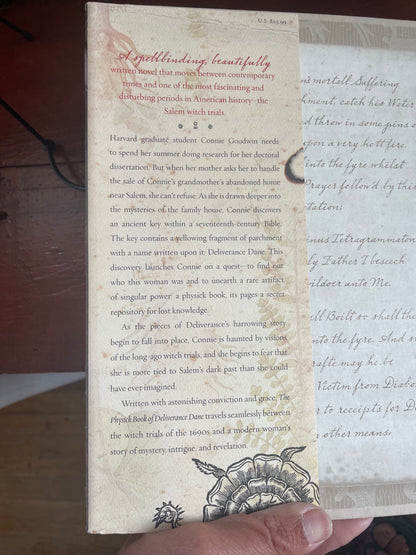 U.S. $25.99
A spellbinding, beautifully
written novel that moves between contemporary
times and one of the most fascinating and
disturbing periods in American history—the
Salem witch trials.
Harvard graduate student Connie Goodwin needs
to spend her summer doing research for her doctoral
dissertation. But when her mother asks her to handle
the sale of Connie's grandmother's abandoned home
near Salem, she can't refuse. As she is drawn deeper into
the mysteries of the family house, Connie discovers
an ancient key within a seventeenth-century Bible.
The key contains a yellowing fragment of parchment
with a name written upon it: Deliverance Dane. This
discovery launches Connie on a quest—to find out
who this woman was and to unearth a rare artifact
of singular power: a physick book, its pages a secret
repository for lost knowledge.
As the pieces of Deliverance's harrowing story
begin to fall into place, Connie is haunted by visions
of the long-ago witch trials, and she begins to fear that
she is more tied to Salem's dark past than she could
have ever imagined.
Written with astonishing conviction and grace, The
Physick Book of Deliverance Dane travels seamlessly between
the witch trials of the 1690s and a modern woman's
story of mystery, intrigue, and revelation.
mortall Suffering
catch hes Water
d throw in some pins o
pon a very hott fire.
into the fyre whilst
Prayer follow'd by this
tation:
Tetragrammaton
ly Father I beseech
ildoer unto Me.
ell Boilt so shall the
into the fyre. And s
crafte may he be
Victim from Diabo
r to receipts for D
other means.